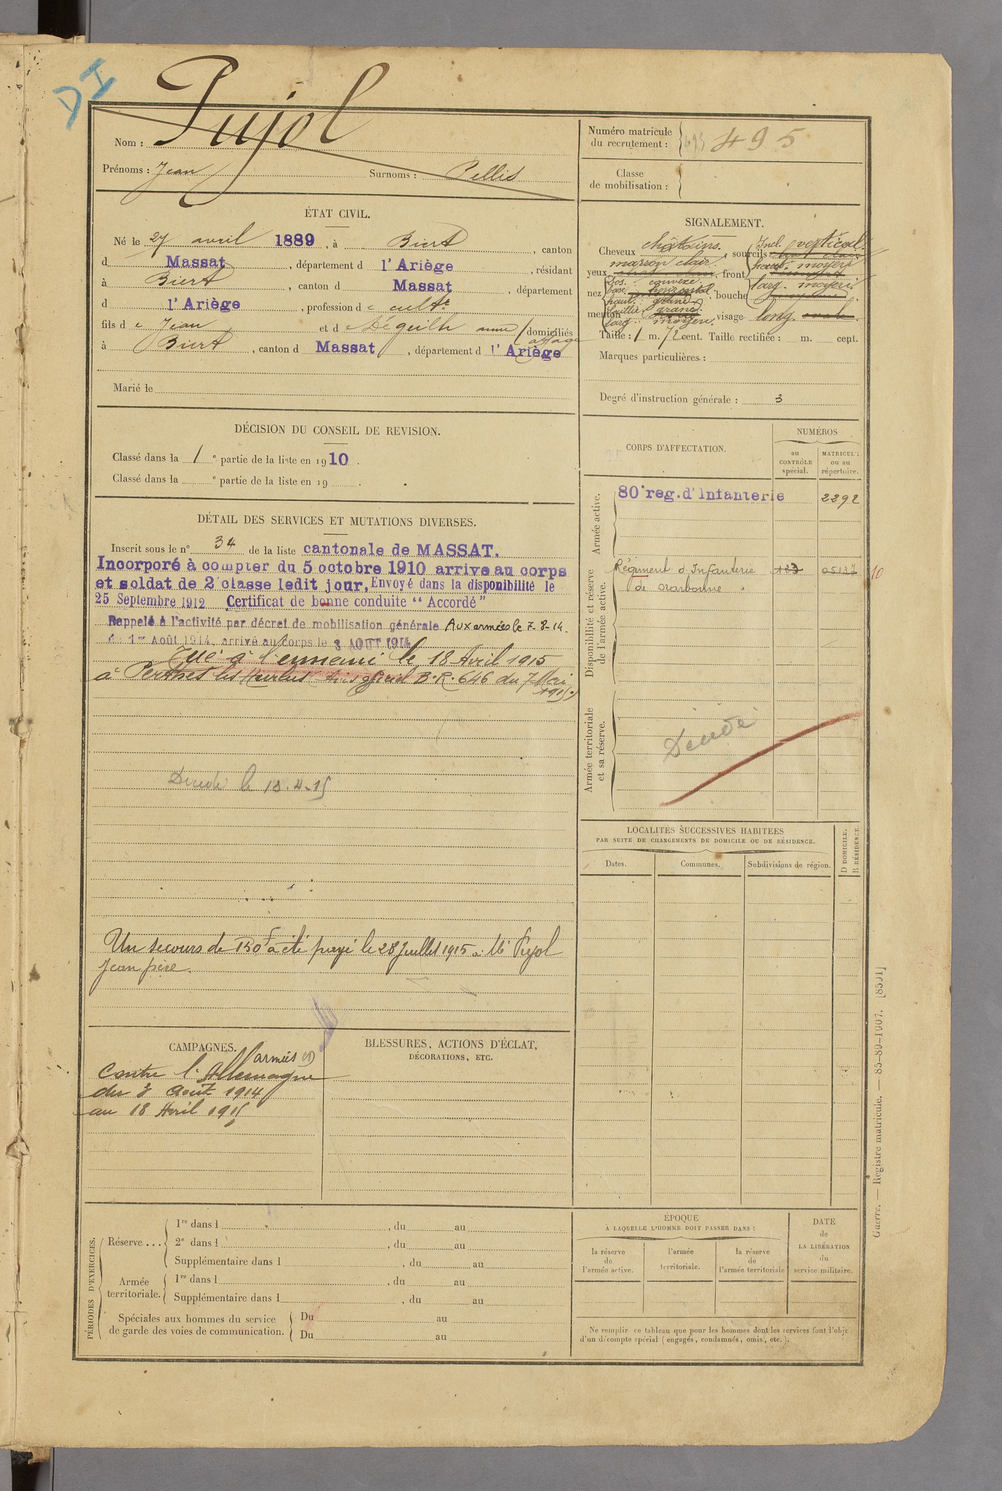 DI
Pujol
Nom :
Prénoms : Jean Surnoms : Pellis
Numéro matricule
du recrutement : 495
Classe
de mobilisation :
ÉTAT CIVIL.
Né le 27 avril 1889, à Biert, canton
d Massat, département d l'Ariège, résidant
à Biert, canton d Massat, département
d l'Ariège, profession d e cultr
fils d e Jean et d e Déguilh anne domiciliés
à Biert, canton d Massat, département d l'Ariège
Marié le
SIGNALEMENT.
Cheveux châtains. , sourcils
yeux marron clair , front
Incl. vertical
haut. moyen
larg. moyen
nez Dos. convexe
Base horizontal
haut. grand
saillie grand
larg. moyen
bouche
menton visage long.
Taille : 1 m. 72 cent. Taille rectifiée : m. cent.
Marques particulières :
Degré d'instruction générale : 3
DÉCISION DU CONSEIL DE REVISION.
Classé dans la 1e partie de la liste en 1910.
Classé dans la e partie de la liste en 19 .
DÉTAIL DES SERVICES ET MUTATIONS DIVERSES.
Inscrit sous le n° 34 de la liste cantonale de MASSAT.
Incorporé à compter du 5 octobre 1910 arrive au corps
et soldat de 2e classe ledit jour, Envoyé dans la disponibilité le
25 Septembre 1912 Certificat de bonne conduite "Accordé"
Rappelé à l'activité par décret de mobilisation générale Aux armées le 7-8-14.
d 1er Août 1914, arrivé au corps le 3 AOUT 1914
Tué à l'ennemi le 18 Avril 1915
à Perthes les Hurlus Avis officiel B.R. 646 du 7 Mai
1915
Décédé le 18-4-15
Un secours de 150f a été payé le 28 Juillet 1915 à Mr Pujol
Jean père.
CORPS D'AFFECTATION.
NUMÉROS
au
CONTRÔLE
spécial.
MATRICULE
ou au
répertoire.
Armée active.
80e reg. d'Infanterie 2292
Disponibilité et réserve
de l'armée active.
Régiment d'Infanterie 123 05137
de Narbonne
Armée territoriale
et sa réserve.
Décédé
LOCALITÉS SUCCESSIVES HABITÉES
PAR SUITE DE CHANGEMENTS DE DOMICILE OU DE RÉSIDENCE.
Dates. Communes. Subdivisions de région.
D DOMICILE.
R RÉSIDENCE.
CAMPAGNES.
Contre l'Allemagne (armées)
du 3 Août 1914
au 18 Avril 1915
BLESSURES, ACTIONS D'ÉCLAT,
DÉCORATIONS, ETC.
PÉRIODES D'EXERCICES.
Réserve....
1re dans l , du au
2e dans l , du au
Supplémentaire dans l , du au
Armée
territoriale.
1re dans l , du au
Supplémentaire dans l , du au
Spéciales aux hommes du service
de garde des voies de communication.
Du au
Du au
ÉPOQUE
À LAQUELLE L'HOMME DOIT PASSER DANS :
la réserve
de
l'armée active.
l'armée
territoriale.
la réserve
de
l'armée territoriale
DATE
de
LA LIBÉRATION
du
service militaire.
Ne remplir ce tableau que pour les hommes dont les services font l'obje
d'un décompte spécial (engagés, condamnés, omis, etc.).
Guerre. — Registre matricule. — 85-89-1907. [8591]